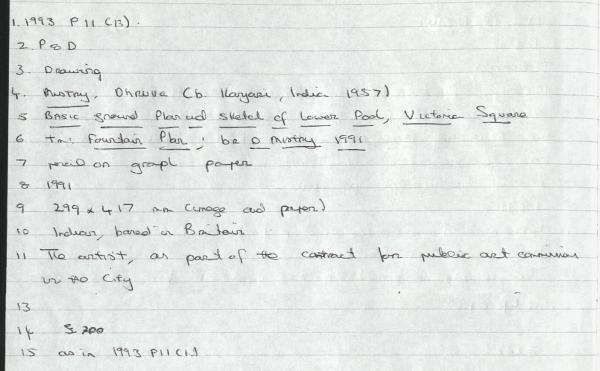 1. 1993 P11 (13).
2. P & D
3. Drawing
4. Mistry, Dhruva (b. Kanjari, India 1957)
5 Basic ground Plan and sketch of Lower Pool, Victoria Square
6 tm: Fountain Plan; br D Mistry 1991
7 pencil on graph paper
8 1991
9 299 x 417 mm (image and paper)
10 Indian, based in Britain
11 The artist, as part of the contract for public art commission
in the City
13
14 200
15 as in 1993 P11(1)